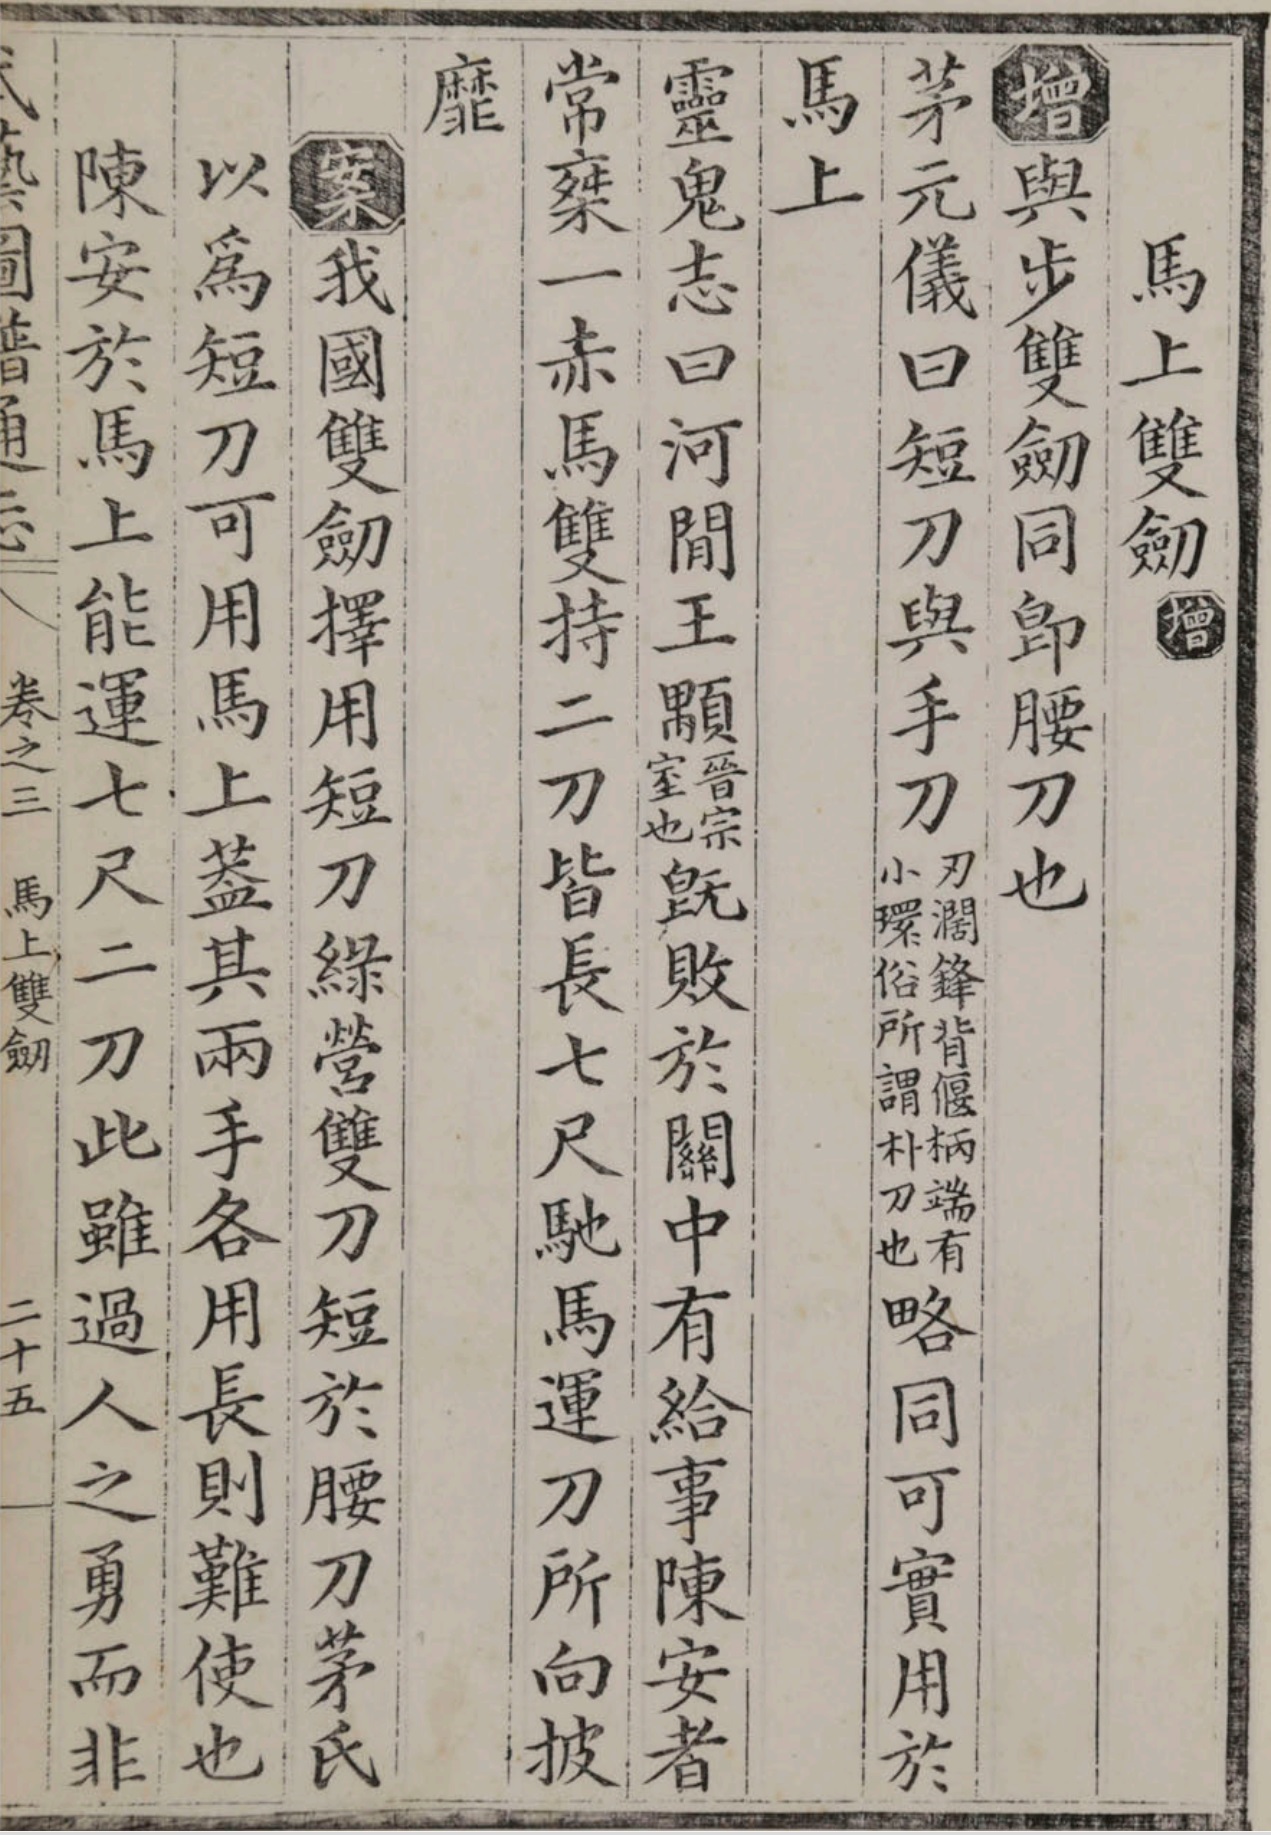 馬上雙劒增
增與步雙劒同卽腰刀也
茅元儀曰短刀與手刀刃濶鋒背偃柄端有小環俗所謂朴刀也略同可實用於
馬上
靈鬼志曰河間王顒晉宗室也旣敗於關中有給事陳安者
常椉一赤馬雙持二刀皆長七尺馳馬運刀所向披
靡
案我國雙劒擇用短刀綠營雙刀短於腰刀茅氏
以爲短刀可用馬上葢其兩手各用長則難使也
陳安於馬上能運七尺二刀此雖過人之勇而非
武藝圖譜通志 卷之三 馬上雙劒 二十五